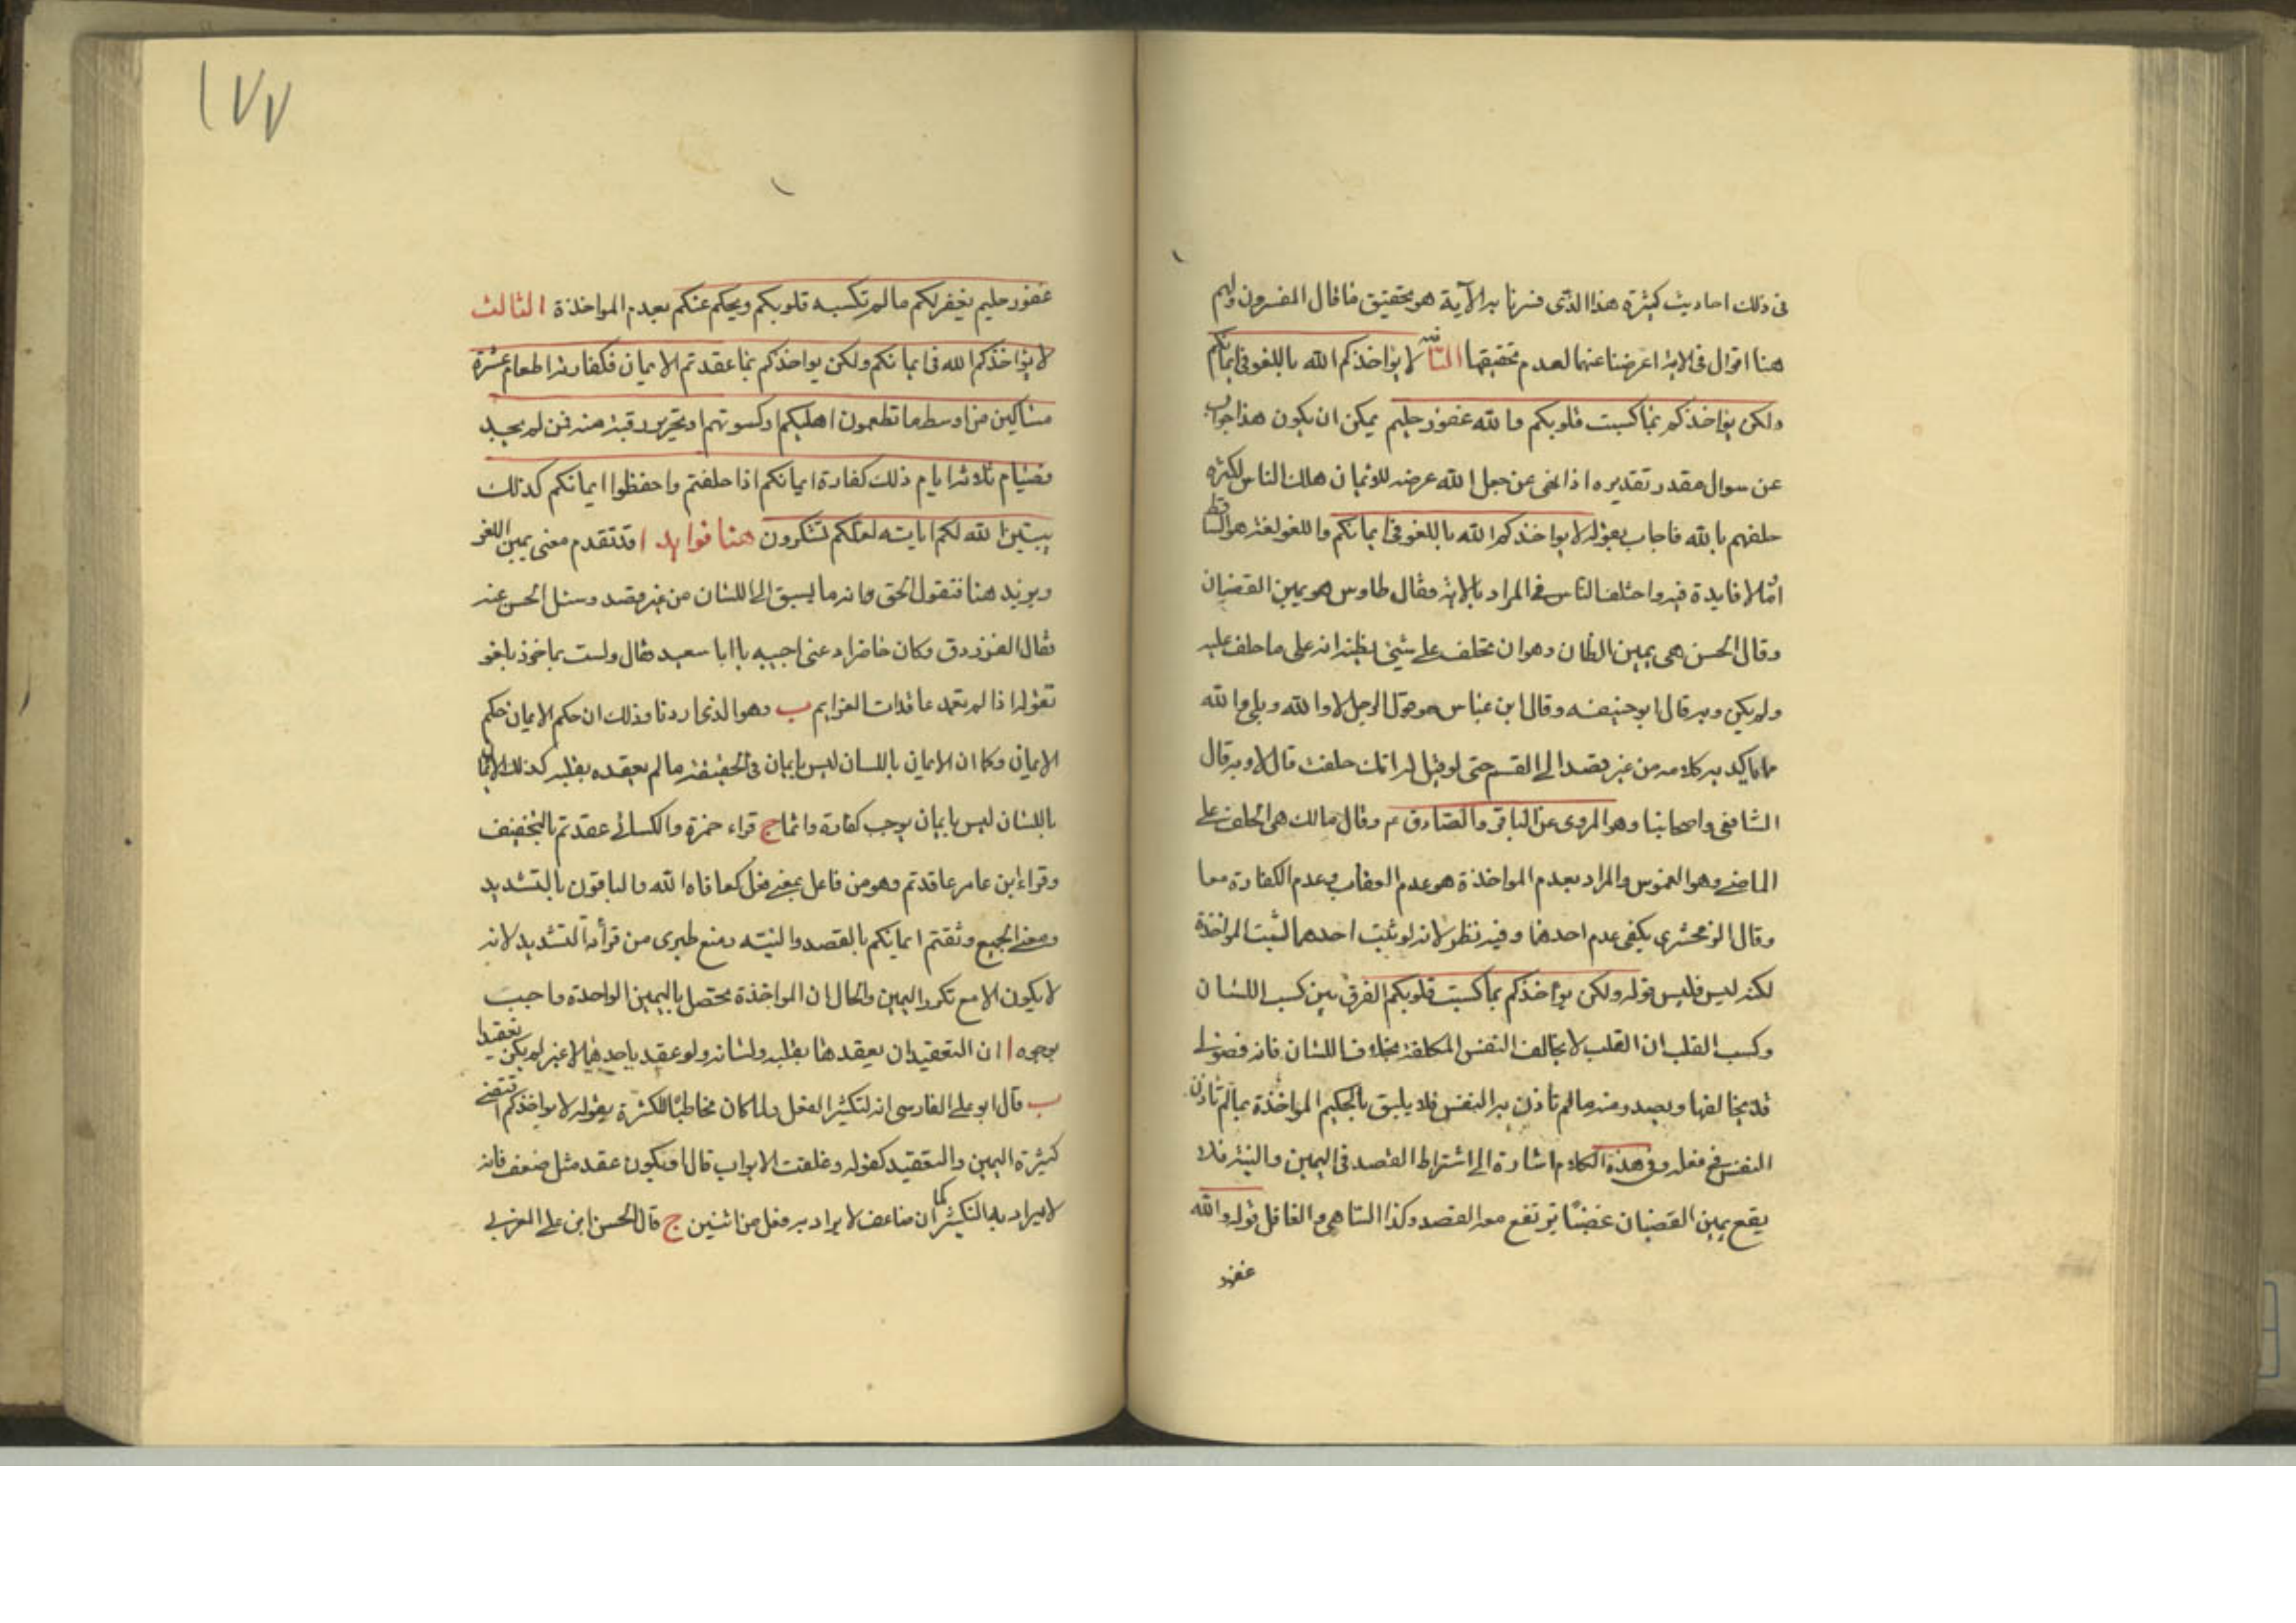 فى ذلك احاديث كثيرة هذا الذى فسرنا به الآية هو تحقيق ما قال المفسرون ولهم
هنا اقوال فى الاية اعرضنا عنها لعدم تحقيقها الثانية لا يؤاخذكم الله باللغو فى ايمانكم
ولكن يؤاخذكم بما كسبت قلوبكم والله غفور حليم يمكن ان يكون هذا جواب
عن سوال مقدر تقديره اذا نهى عن جعل الله عرضه للايمان هلك الناس لكثرة
حلفهم بالله فاجاب بقوله لا يواخذكم الله باللغو فى ايمانكم واللغو لغة هو الساقط
الذى لا فايدة فيه واختلف الناس فى المراد بالاية فقال طاوس هو يمين الغضبان
وقال الحسن هى يمين الظان وهو ان يحلف على شيئ يظنه انه على ما حلف عليه
ولم يكن وبه قال ابو حنيفه وقال ابن عباس هو قول الرجل لا والله وبلى والله
مما يأكيد به كلامه من غير قصد الى القسم حتى لو قيل له انك حلفت قال لا وبه قال
الشافعى واصحابنا وهو المروى عن الباقر والصادق ع م وقال مالك هى الحلف على
الماضى وهو الغموس والمراد بعدم المواخذة هو عدم العقاب وعدم الكفارة معا
وقال الزمخشرى يكفى عدم احدهما وفيه نظر لانه لو ثبت احدهما لثبت المواخذة
لكنه ليس فليس قوله ولكن يؤاخذكم بما كسبت قلوبكم الفرق بين كسب اللسان
وكسب القلب ان القلب لا يخالف النفس المكلفة بخلاف اللسان فانه فضولى
قد يخالفها ويصدر منه ما لم تأذن به النفس فلا يليق بالحكيم المواخذة بما لم تأذن
النفس فى فعله وفى هذه الكلام اشارة الى اشتراط القصد فى اليمين والنية فلا
يقع يمين الغضبان غضبًا يرتفع معه القصد وكذا الساهى والغافل قوله والله
غفور
١٧٧
غفور حليم يغفر لكم ما لم تكسبه قلوبكم ويحكم عنكم بعدم المواخذة الثالث
لا يؤاخذكم الله فى ايمانكم ولكن يواخذكم بما عقدتم الايمان فكفارته اطعام عشرة
مساكين من اوسط ما تطعمون اهليكم او كسوتهم او تحرير رقبة فمن لم يجد
فصيام ثلاثة ايام ذلك كفارة ايمانكم اذا حلفتم واحفظوا ايمانكم كذلك
يبين الله لكم اياته لعلكم تشكرون هنا فوايد ا قد تقدم معنى يمين اللغو
ويزيد هنا فنقول الحق وانه ما يسبق الى اللسان من غير قصد وسئل الحسن عنه
فقال الفرزدق وكان حاضرا دعنى اجيبه يا ابا سعيد فقال ولست بماخوذ بلغو
تقوله اذا لم تعمد عاقدات العزايم ب وهو الذى اردنا وذلك ان حكم الايمان حكم
الايمان وكما ان الايمان باللسان ليس بايمان فى الحقيقة ما لم يعقده بقلبه كذلك الايمان
باللسان ليس بايمان يوجب كفارة واثما ج قراء حمزة والكسائى عقدتم بالتخفيف
وقراء ابن عامر عاقدتم وهو من فاعل بمعنى فعل كعافاه الله والباقون بالتشديد
ومعنى الجميع وثقتم ايمانكم بالقصد والنيته ومنع طبرى من قرأة التشديد لانه
لا يكون الا مع تكرر اليمين والحال ان المواخذة تحصل باليمين الواحدة واجيب
بوجوه ا ان التعقيد ان يعقدها بقلبه ولسانه ولو عقد باحدهما لا غير لم يكن تعقيدا
ب قال ابو على الفارسى انه لتكثير الفعل ولما كان مخاطبًا للكثرة بقوله لا يواخذكم اقتضى
كثرة اليمين والتعقيد كقوله وغلقت الابواب قال او يكون عقد مثل ضعف فانه
لا يراد به التكثير كما ان ضاعف لا يراد به فعل من اثنين ج قال الحسن ابن على المغربى